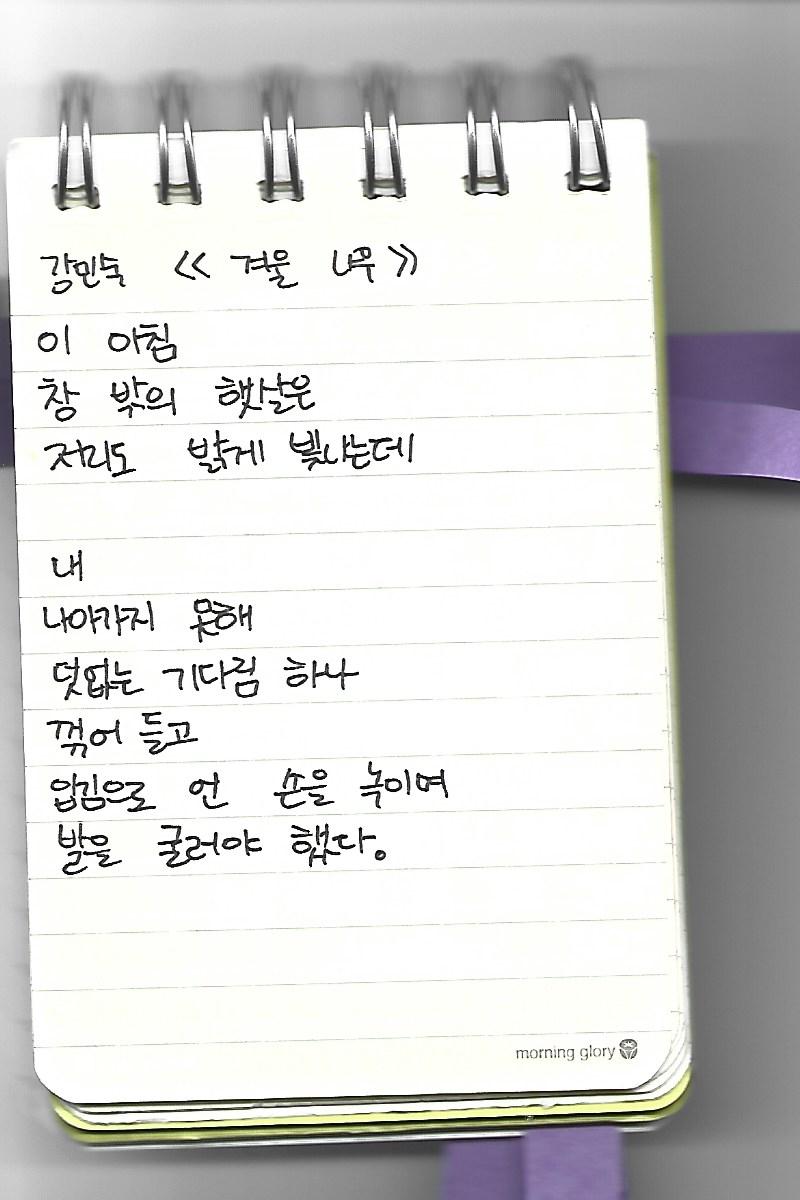 강민숙 《 겨울 나무 》
이 아침
창 밖의 햇살은
저리도 밝게 빛나는데
내
나아가지 못해
덧없는 기다림 하나
꺾어 들고
입김으로 언 손을 녹이며
발을 굴러야 했다.
morning glory